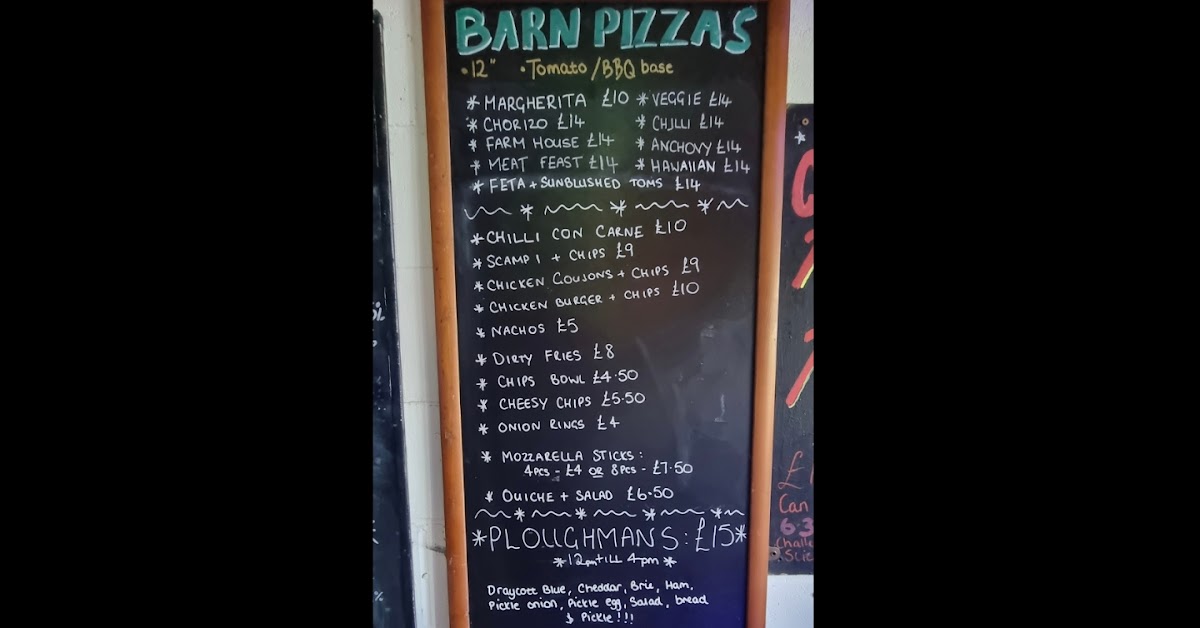 BARN PIZZAS
•12" •Tomato/BBQ base
*MARGHERITA £10 *VEGGIE £14
*CHORIZO £14 *CHILLI £14
*FARM HOUSE £14 *ANCHOVY £14
*MEAT FEAST £14 *HAWAIIAN £14
*FETA + SUNBLUSHED TOMS £14
*CHILLI CON CARNE £10
*SCAMPI + CHIPS £9
*CHICKEN COUJONS + CHIPS £9
*CHICKEN BURGER + CHIPS £10
*NACHOS £5
*DIRTY FRIES £8
*CHIPS BOWL £4.50
*CHEESY CHIPS £5.50
*ONION RINGS £4
*MOZZARELLA STICKS:
4PCS - £4 OR 8PCS - £7.50
*QUICHE + SALAD £6.50
*PLOUGHMANS: £15*
*12pm TILL 4pm*
Draycott Blue, Cheddar, Brie, Ham,
Pickle onion, Pickle egg, Salad, bread
& Pickle!!!
Can